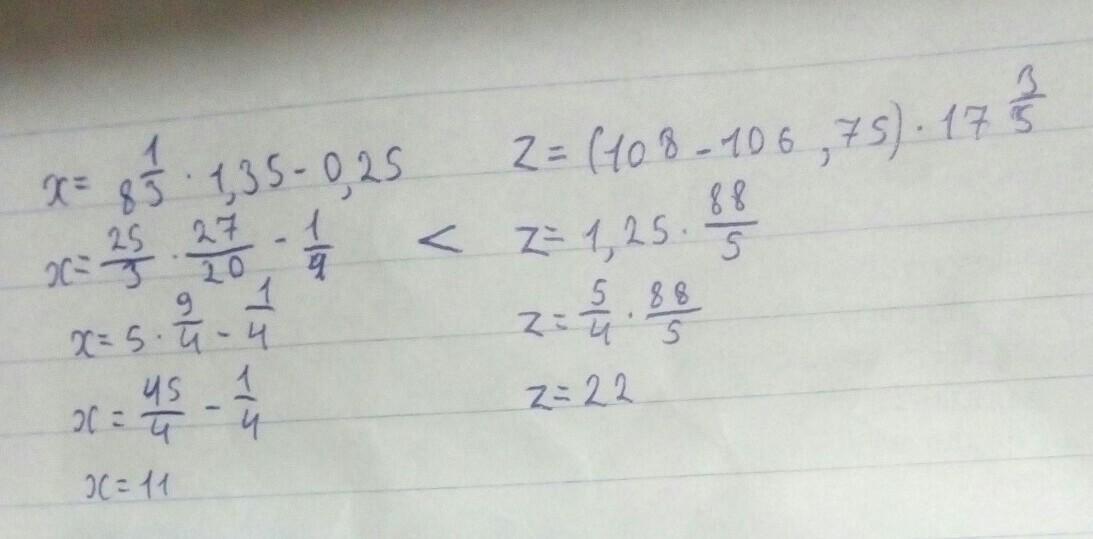 x = 8 1/3 · 1,35 - 0,25
x = 25/3 · 27/20 - 1/4
x = 5 · 9/4 - 1/4
x = 45/4 - 1/4
x = 11
<
z = (108 - 106,75) · 17 3/5
z = 1,25 · 88/5
z = 5/4 · 88/5
z = 22